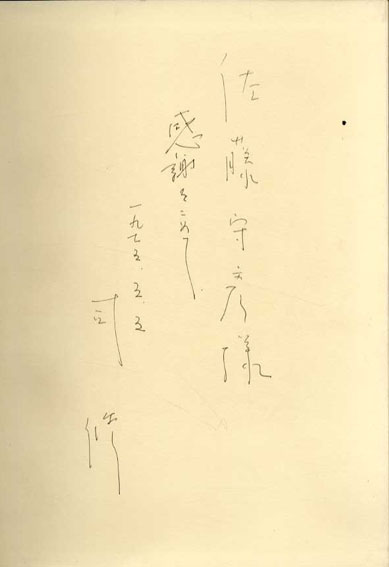 佐藤守彦様
感謝をこめて
一九七五.五.五
司 修